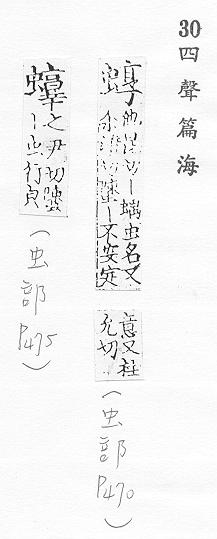 30 四聲篇海
蜳 丨 虫名又
切螴丨不安定
意又柱
允切
(虫部 P470)
之尹切
丨 行皃
(虫部 P475)